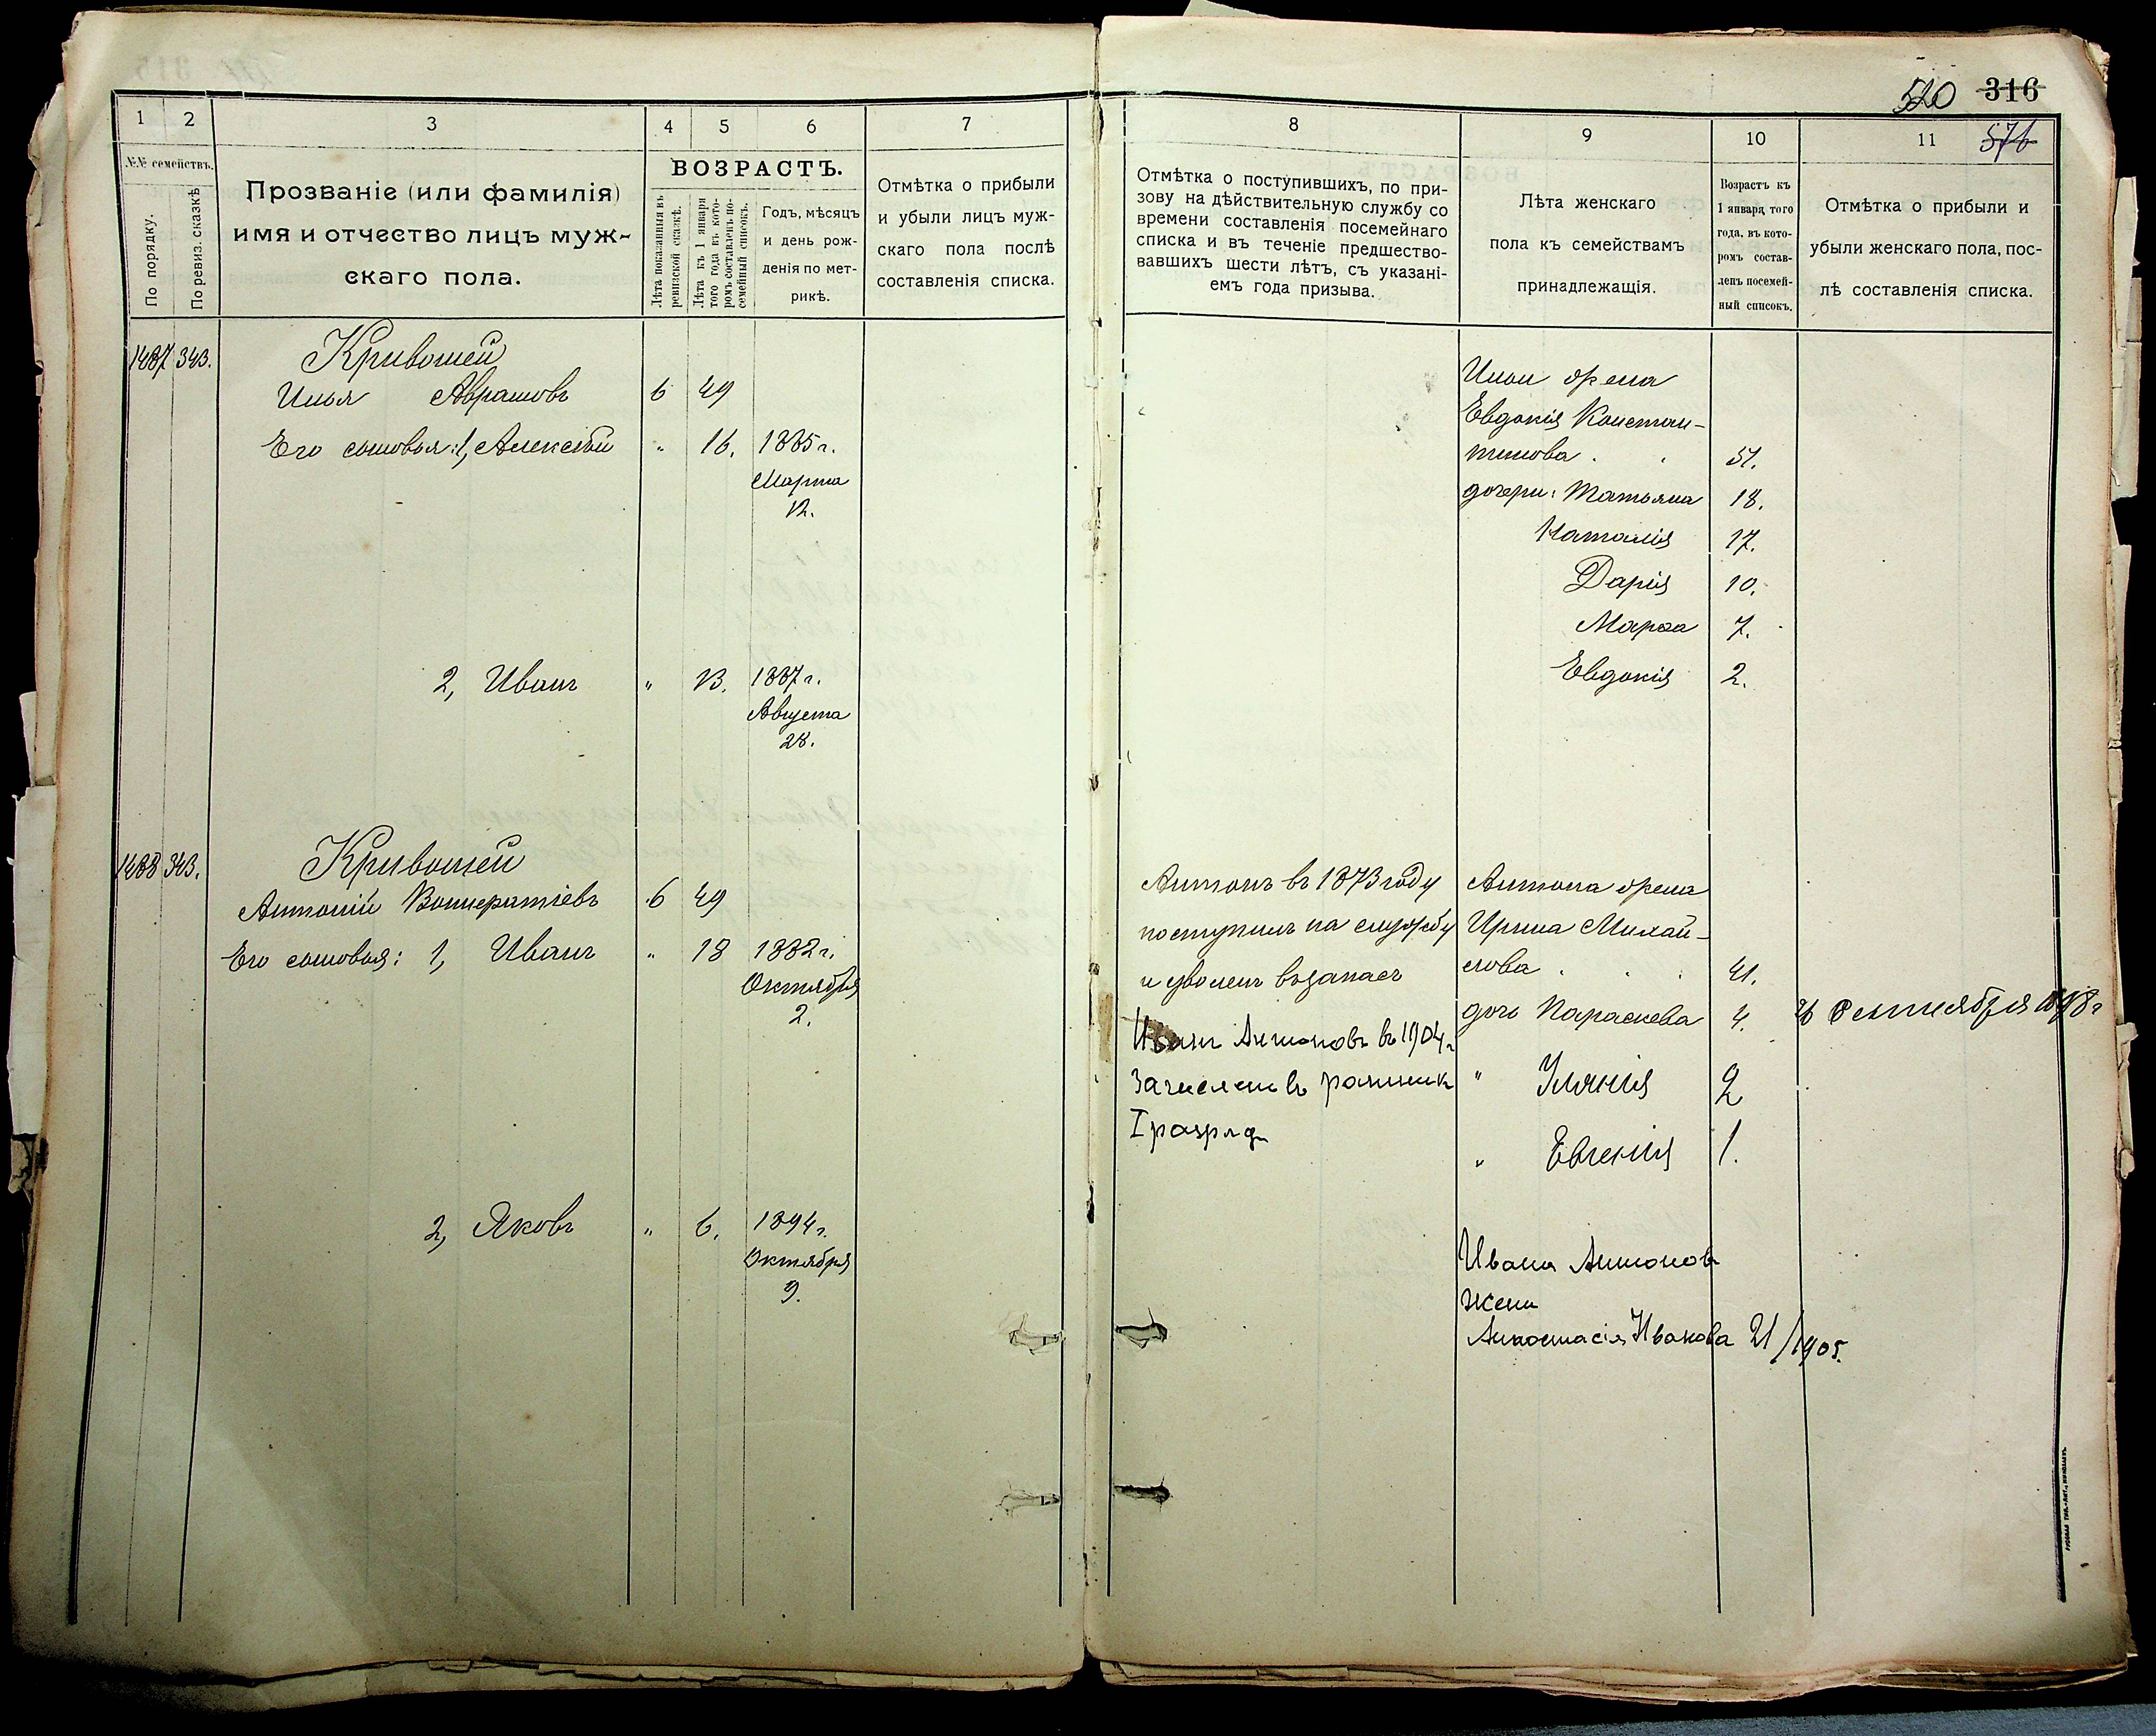 520 316
576
1 2 3 4 5 6 7
№№ семействъ.
По порядку.
По ревиз. сказкѣ
Прозваніе (или фамилія)
имя и отчество лицъ муж-
скаго пола.
ВОЗРАСТЪ.
Лѣта показанныя въ
ревизской сказкѣ.
Лѣта къ 1 января
того года въ кото-
ромъ составленъ по-
семейный списокъ.
Годъ, мѣсяцъ
и день рож-
денія по мет-
рикѣ.
Отмѣтка о прибыли
и убыли лицъ муж-
скаго пола послѣ
составленія списка.
1487 343. Кривошей
Илья Абрамовъ 6 49
Его сыновья: 1, Алексѣй " 16. 1885 г.
Марта
12.
2, Иванъ " 13. 1887 г.
Августа
28.
1488 343. Кривошей
Антоній Вонифатіевъ 6 49
Его сыновья: 1, Иванъ " 18 1882 г.
Октября
2.
2, Яковъ " 6. 1894 г.
Октября
9.
8 9 10 11
Отмѣтка о поступившихъ, по при-
зову на дѣйствительную службу со
времени составленія посемейнаго
списка и въ теченіе предшество-
вавшихъ шести лѣтъ, съ указані-
емъ года призыва.
Лѣта женскаго
пола къ семействамъ
принадлежащія.
Возрастъ къ
1 января того
года, въ кото-
ромъ состав-
ленъ посемей-
ный списокъ.
Отмѣтка о прибыли и
убыли женскаго пола, пос-
лѣ составленія списка.
Ильи жена
Евдокія Констан-
тинова
дочери: Татьяна 18.
Наталія 17.
Дарія 10.
Марѳа 7.
Евдокія 2.
Антонъ въ 1873 году
поступилъ на службу
и уволенъ въ запасъ
Иванъ Антоновъ въ 1904 г
зачисленъ въ ратник
I разряд
Антона жена
Ирина Михай-
лова 41.
дочь Параскева 4. 26 Сентября 1898 г
" Ульянія 2
" Евгенія 1.
Ивана Антонов
жена
Анастасія Иванова 21/1905.